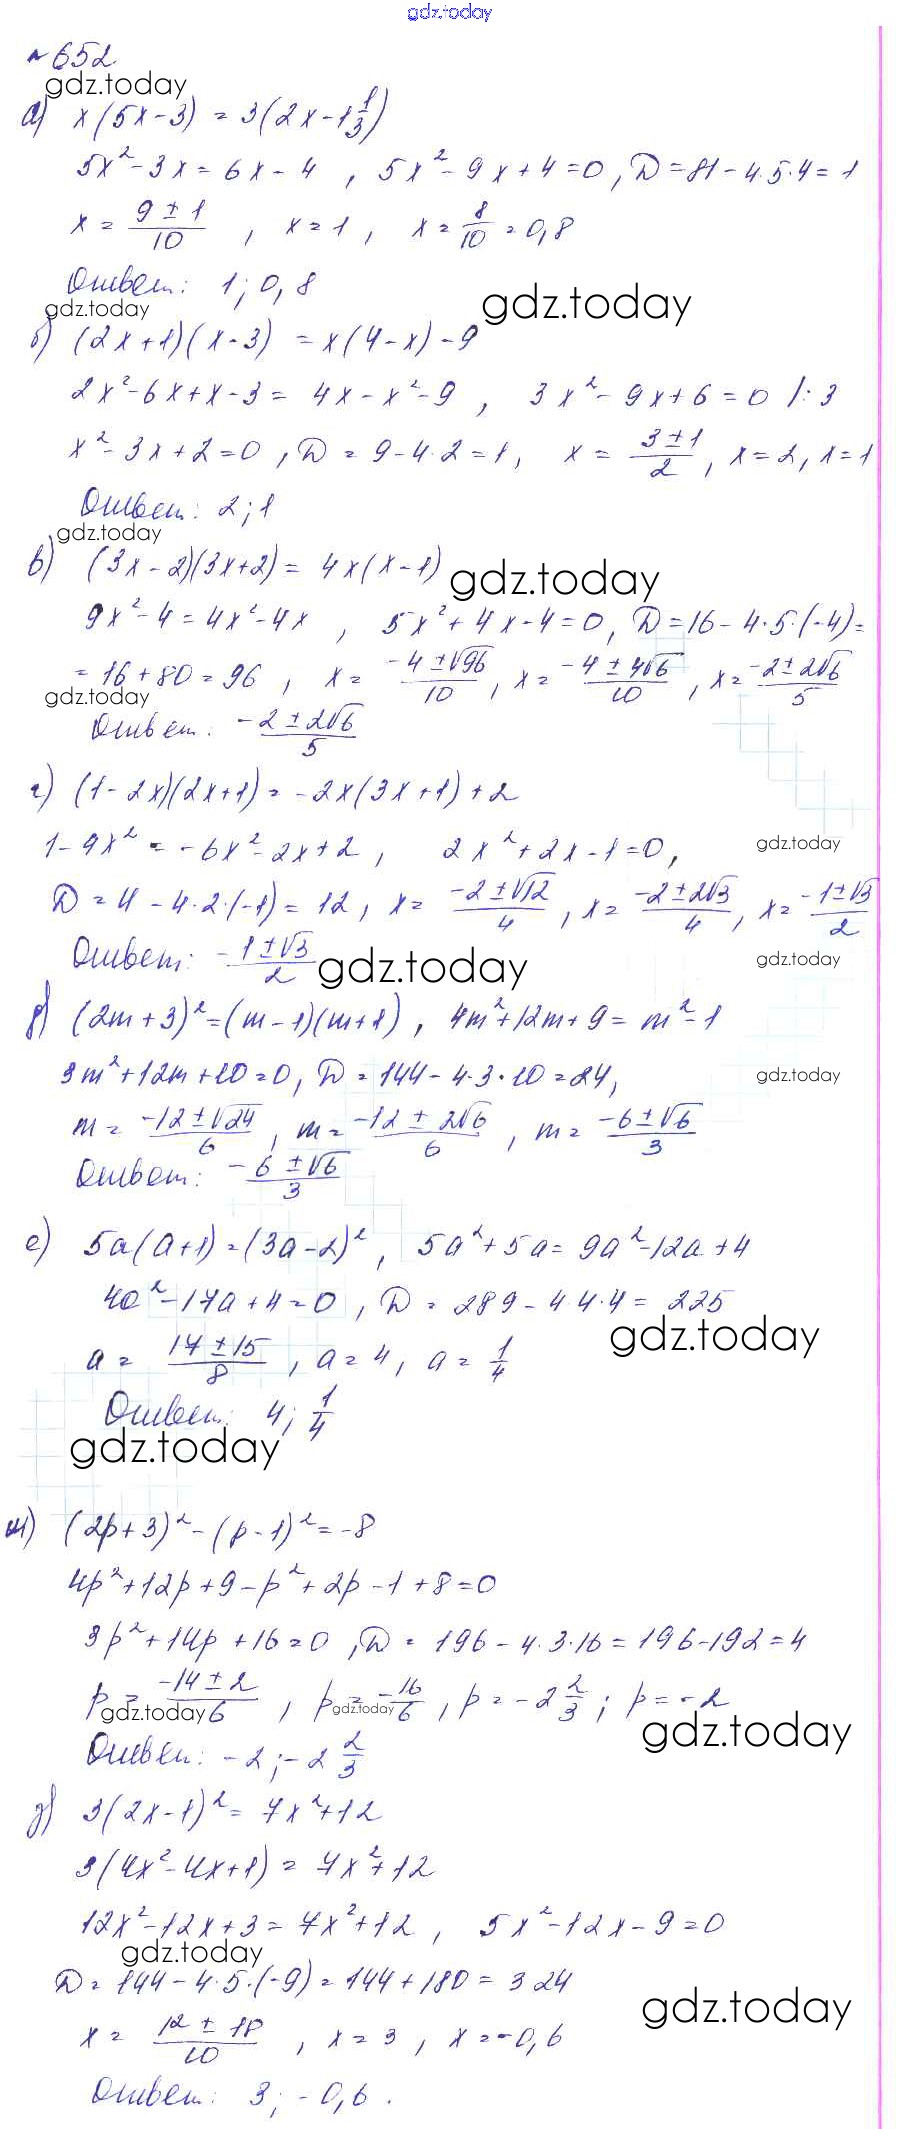 gdz.today
№652
gdz.today
а) x(5x-3) = 3(2x-1 1/3)
5x²-3x=6x-4, 5x²-9x+4=0, D=81-4·5·4=1
x = (9±1)/10, x=1, x=8/10=0,8
Ответ: 1; 0,8
gdz.today gdz.today
б) (2x+1)(x-3) = x(4-x)-9
2x²-6x+x-3= 4x-x²-9, 3x²-9x+6=0 |:3
x²-3x+2=0, D=9-4·2=1, x=(3±1)/2, x=2, x=1
Ответ: 2; 1
gdz.today
в) (3x-2)(3x+2)= 4x(x-1)
gdz.today
9x²-4=4x²-4x, 5x²+4x-4=0, D=16-4·5·(-4)=
=16+80=96, x=(-4±√96)/10, x=(-4±4√6)/10, x=(-2±2√6)/5
gdz.today
Ответ: (-2±2√6)/5
г) (1-2x)(2x+1)=-2x(3x+1)+2
1-4x²=-6x²-2x+2, 2x²+2x-1=0,
gdz.today
D=4-4·2·(-1)=12, x=(-2±√12)/4, x=(-2±2√3)/4, x=(-1±√3)/2
Ответ: (-1±√3)/2
gdz.today gdz.today
д) (2m+3)²=(m-1)(m+1), 4m²+12m+9=m²-1
3m²+12m+10=0, D=144-4·3·10=24,
gdz.today
m=(-12±√24)/6, m=(-12±2√6)/6, m=(-6±√6)/3
Ответ: (-6±√6)/3
е) 5a(a+1)=(3a-2)², 5a²+5a=9a²-12a+4
4a²-17a+4=0, D=289-4·4·4=225
gdz.today
a=(17±15)/8, a=4, a=1/4
Ответ: 4; 1/4
gdz.today
ж) (2p+3)²-(p-1)²=-8
4p²+12p+9-p²+2p-1+8=0
3p²+14p+16=0, D=196-4·3·16=196-192=4
p=(-14±2)/6, p=-16/6, p=-2 2/3; p=-2
gdz.today gdz.today gdz.today
Ответ: -2; -2 2/3
з) 3(2x-1)²=7x²+12
3(4x²-4x+1)=7x²+12
12x²-12x+3=7x²+12, 5x²-12x-9=0
gdz.today
D=144-4·5·(-9)=144+180=324
gdz.today
x=(12±18)/10, x=3, x=-0,6
Ответ: 3; -0,6.